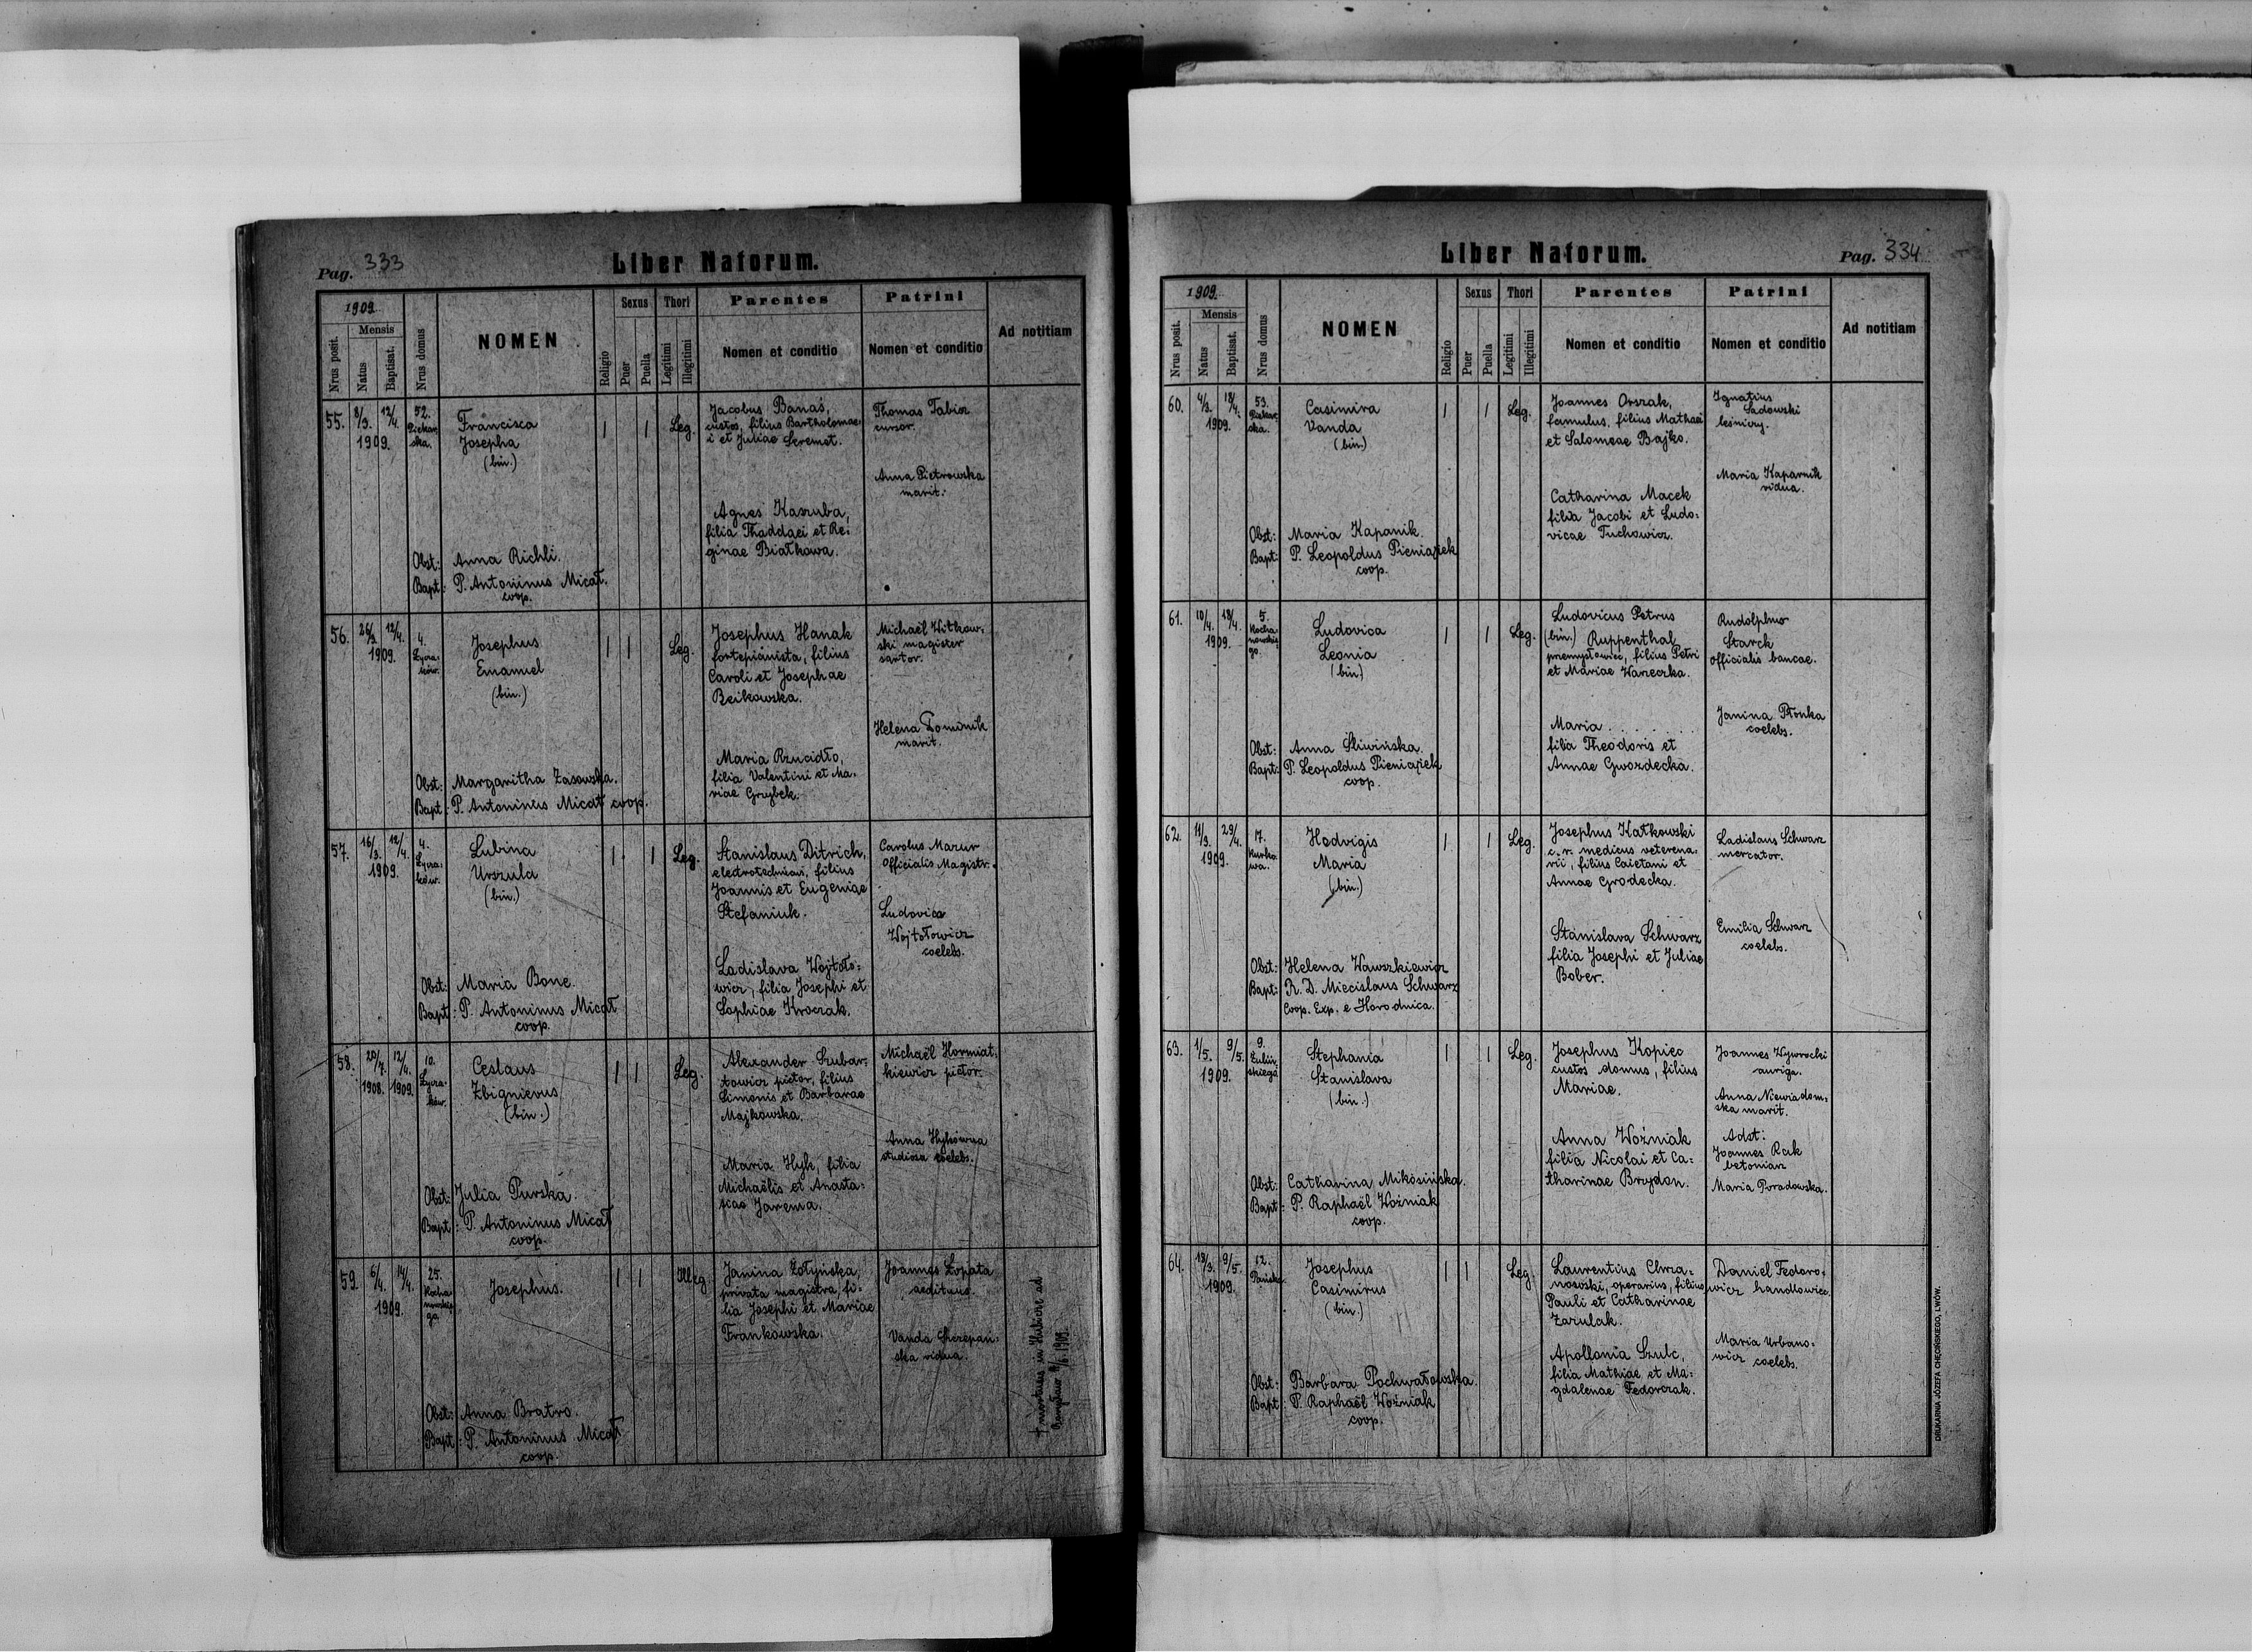 Pag. 333
Liber Natorum.
1909
Nrus posit.
Mensis
Natus
Baptisat.
Nrus domus
NOMEN
Religio
Sexus
Puer
Puella
Thori
Legitimi
Illegitimi
Parentes
Nomen et conditio
Patrini
Nomen et conditio
Ad notitiam
55.
8/3. 12/4.
1909.
52.
Piekar-
ska.
Francisca
Josepha
(bin.)
Obst: Anna Richli.
Bapt: P. Antoninus Micał
coop.
Leg.
Jacobus Banaś,
custos, filius Bartholomae-
i et Juliae Seremet.
Agnes Kaszuba,
filia Thaddaei et Re-
ginae Białkowa.
Thomas Tabior
cursor.
Anna Pietrowska
marit.
56.
26/3. 12/4.
1909.
4.
Łycza-
ków.
Josephus
Emanuel
(bin.)
Obst: Margaritha Zasowska.
Bapt: P. Antoninus Micał coop.
Leg.
Josephus Hanak
fortepianista, filius
Caroli et Josephae
Beikowska.
Maria Rzucidło,
filia Valentini et Ma-
riae Grzybek.
Michaël Witkow-
ski magister
sartor.
Helena Dominik
marit.
57.
16/3. 12/4.
1909.
4.
Łycza-
ków.
Lubina
Urszula
(bin.)
Obst: Maria Bone.
Bapt: P. Antoninus Micał
coop.
Leg.
Stanislaus Ditrich,
electrotechnicus, filius
Joannis et Eugeniae
Stefaniuk.
Ladislava Wojtoło-
wicz, filia Josephi et
Sophiae Kroczak.
Carolus Mazur
officialis Magistr.
Ludovica
Wojtołowicz
coelebs.
58.
20/7. 12/4.
1908. 1909.
10.
Łycza-
ków.
Ceslaus
Zbignievus
(bin.)
Obst: Julia Purska.
Bapt: P. Antoninus Micał
coop.
Leg.
Alexander Szubar-
towicz pictor, filius
Simonis et Barbarae
Majkowska.
Maria Hyk, filia
Michaëlis et Anasta-
siae Jarema.
Michaël Horniat-
kiewicz pictor.
Anna Hykówna
studiosa coelebs.
59.
6/4. 14/4.
1909.
25.
Kocha-
nowskie-
go.
Josephus.
Obst: Anna Bratro.
Bapt: P. Antoninus Micał
coop.
Illeg.
Janina Żołyńska,
privata magistra, fi-
lia Josephi et Mariae
Frankowska.
Joannes Łopata
aedituus.
Vanda Szczepań-
ska vidua.
† mortuus in
1909.
Liber Natorum.
Pag. 334
1909.
Nrus posit.
Mensis
Natus
Baptisat.
Nrus domus
NOMEN
Religio
Sexus
Puer
Puella
Thori
Legitimi
Illegitimi
Parentes
Nomen et conditio
Patrini
Nomen et conditio
Ad notitiam
60.
4/3. 18/4.
1909.
53.
Piekar-
ska.
Casimira
Vanda
(bin.)
Obst: Maria Kapanik.
Bapt: P. Leopoldus Pieniążek
coop.
Leg.
Joannes Orszak,
famulus, filius Mathaei
et Salomeae Bajko.
Catharina Macek
filia Jacobi et Ludo-
vicae Tuchowicz.
Ignatius
Sadowski
leśniczy.
Maria Kaparnik
vidua.
61.
10/4. 18/4.
1909.
5.
Kocha-
nowskie-
go.
Ludovica
Leonia
(bin)
Obst: Anna Śliwińska.
Bapt: P. Leopoldus Pieniążek
coop.
Leg.
Ludovicus Petrus
(bin.) Ruppenthal,
przemysłowiec, filius Petri
et Mariae Wareczka.
Maria . . . . . . . .
filia Theodoris et
Annae Gwozdecka.
Rudolphus
Starck
officialis bancae.
Janina Płonka
coelebs.
62.
11/3. 29/4.
1909.
17.
Kurko-
wa.
Hedvigis
Maria
(bin.)
Obst: Helena Wawszkiewicz
Bapt: R. D. Miecislaus Schwarz
Coop. Exp. e Horodnica.
Leg.
Josephus Katkowski
c. r. medicus veterena-
rii, filius Caietani et
Annae Grodecka.
Stanislava Schwarz
filia Josephi et Juliae
Bober.
Ladislaus Schwarz
mercator.
Emilia Schwarz
coelebs.
63.
1/5. 9/5.
1909.
9.
skiego
Stephania
Stanislava
(bin.)
Obst: Catharina Mikosińska.
Bapt: P. Raphaël Woźniak
coop.
Leg.
Josephus Kopiec
custos domus, filius
Mariae.
Anna Woźniak
filia Nicolai et Ca-
tharinae Brydon.
Joannes Wywrocki
auriga.
Anna Niewiadom-
ska marit.
Adst:
Joannes Rak
betoniarz
Maria Poradowska.
64.
18/3. 9/5.
1909.
12.
Pańska.
Josephus
Casimirus
(bin.)
Obst: Barbara Pochwałowska.
Bapt: P. Raphaël Woźniak
coop.
Leg.
Laurentius Chrza-
nowski, operarius, filius
Pauli et Catharinae
Zazulak.
Apollonia Szulc,
filia Mathiae et Ma-
gdalenae Fedorczak.
Daniel Fedoro-
wicz handlowiec.
Maria Urbano-
wicz coelebs.
DRUKARNIA JÓZEFA CHĘCIŃSKIEGO, LWÓW.